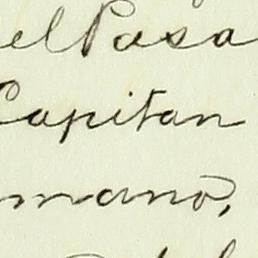 el Pasa
Capitan
mano,